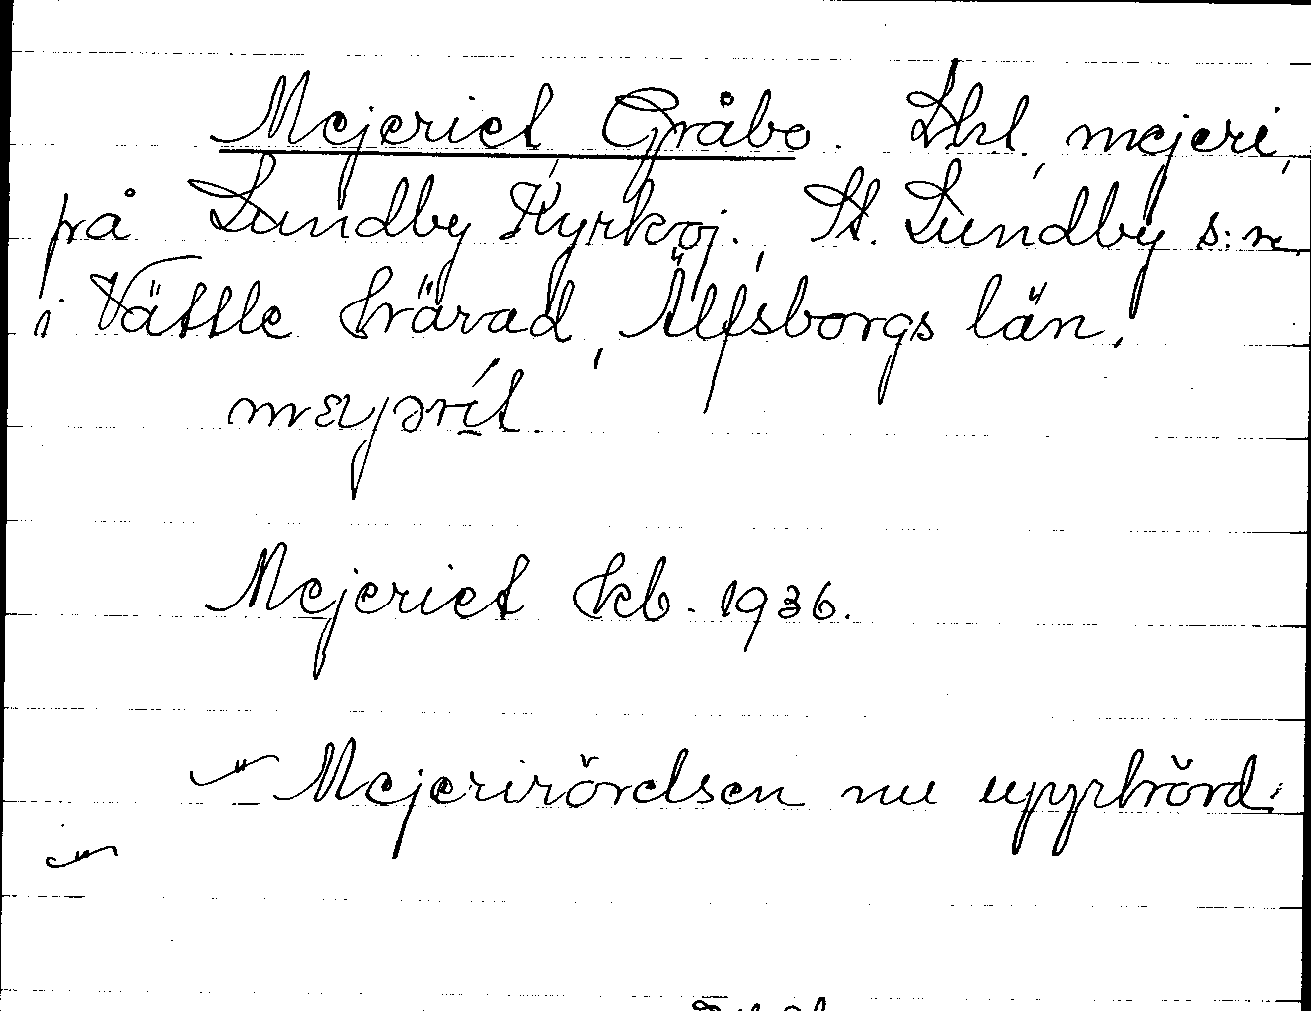 Mejeriet, Gråbo. Lht, mejeri,
på Lundby Kyrkoj., St. Lundby s:n
i Vättle härad, Älfsborgs län.
mɛyərít.
Mejeriet hkb. 1936.
"Mejerirörelsen nu upphörd."